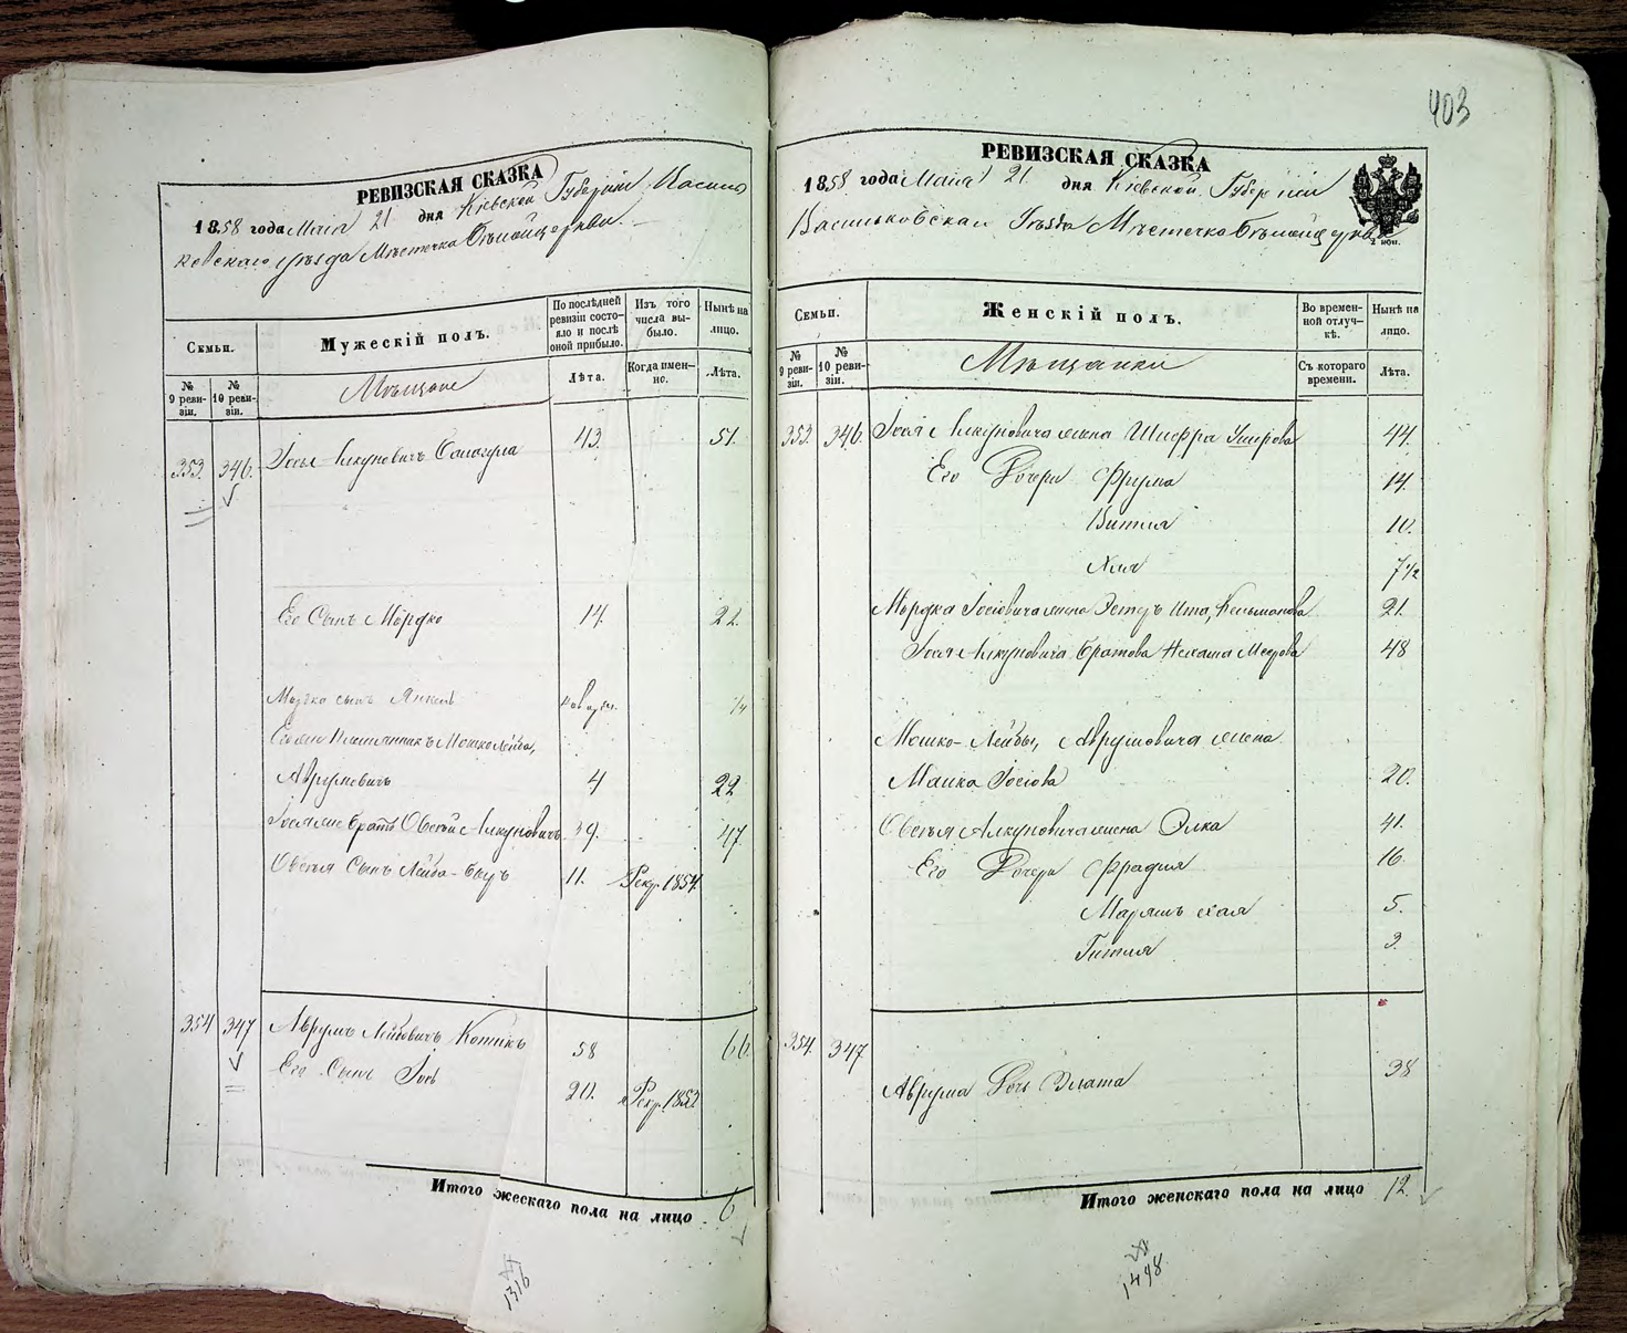 РЕВИЗСКАЯ СКАЗКА
1858 года Маія 21 дня Кіевской Губерніи Василь
ковскаго уѣзда Мѣстечка Бѣлойцеркви.
Семьи.
Мужескій полъ.
По послѣдней ревизіи состояло и послѣ оной прибыло.
Изъ того числа выбыло.
Нынѣ на лицо.
№ 9 реви-зіи.
№ 10 реви-зіи.
Мѣщане
Лѣта.
Когда имен-но.
Лѣта.
353. 346. Іось Ицкуновичъ 43. 51.
Его Сынъ Мордко 14. 22.
Мордко сынъ Янкель 1/4
Іося же Племянникъ Мошко Лейба,
Аврумовичъ 4 22
Іося же братъ Овсѣй Ицкуновичъ 39. 47
Овсѣя Сынъ Лейба-Беръ 11. Рекр. 1854.
354 347 Аврумъ Лейбовичъ Котикъ 58 66.
Его Сынъ Іось 20. Рекр. 1852
Итого жескаго пола на лицо 6
1316
403
РЕВИЗСКАЯ СКАЗКА
1858 года Маія 21 дня Кіевской Губерніи
Васильковскаго Уѣзда Мѣстечка Бѣлойцеркви
Семьи.
Женскій полъ.
Во времен-ной отлуч-кѣ.
Нынѣ на лицо.
№ 9 реви-зіи.
№ 10 реви-зіи.
Мѣщанки
Съ котораго времени.
Лѣта.
353. 346. Іося Ицкуновича жена Шифра 44.
Его Дочери Фрума 14.
Витля 10.
Хая 7 1/2
Мордка Іосіовича жена Эстеръ Ита, Кельманова 21.
Іося Ицкуновича братова Нехама Меерова 48
Мошко-Лейбы, Аврумовича жена
Малка Іосіова 20.
Овсѣя Ицкуновича жена Элка 41.
Его Дочери Фрадля 16.
Марьямъ хая 5.
Гитля 3.
354. 347.
Аврума Дочь Злата 38
Итого женскаго пола на лицо 12.
1498